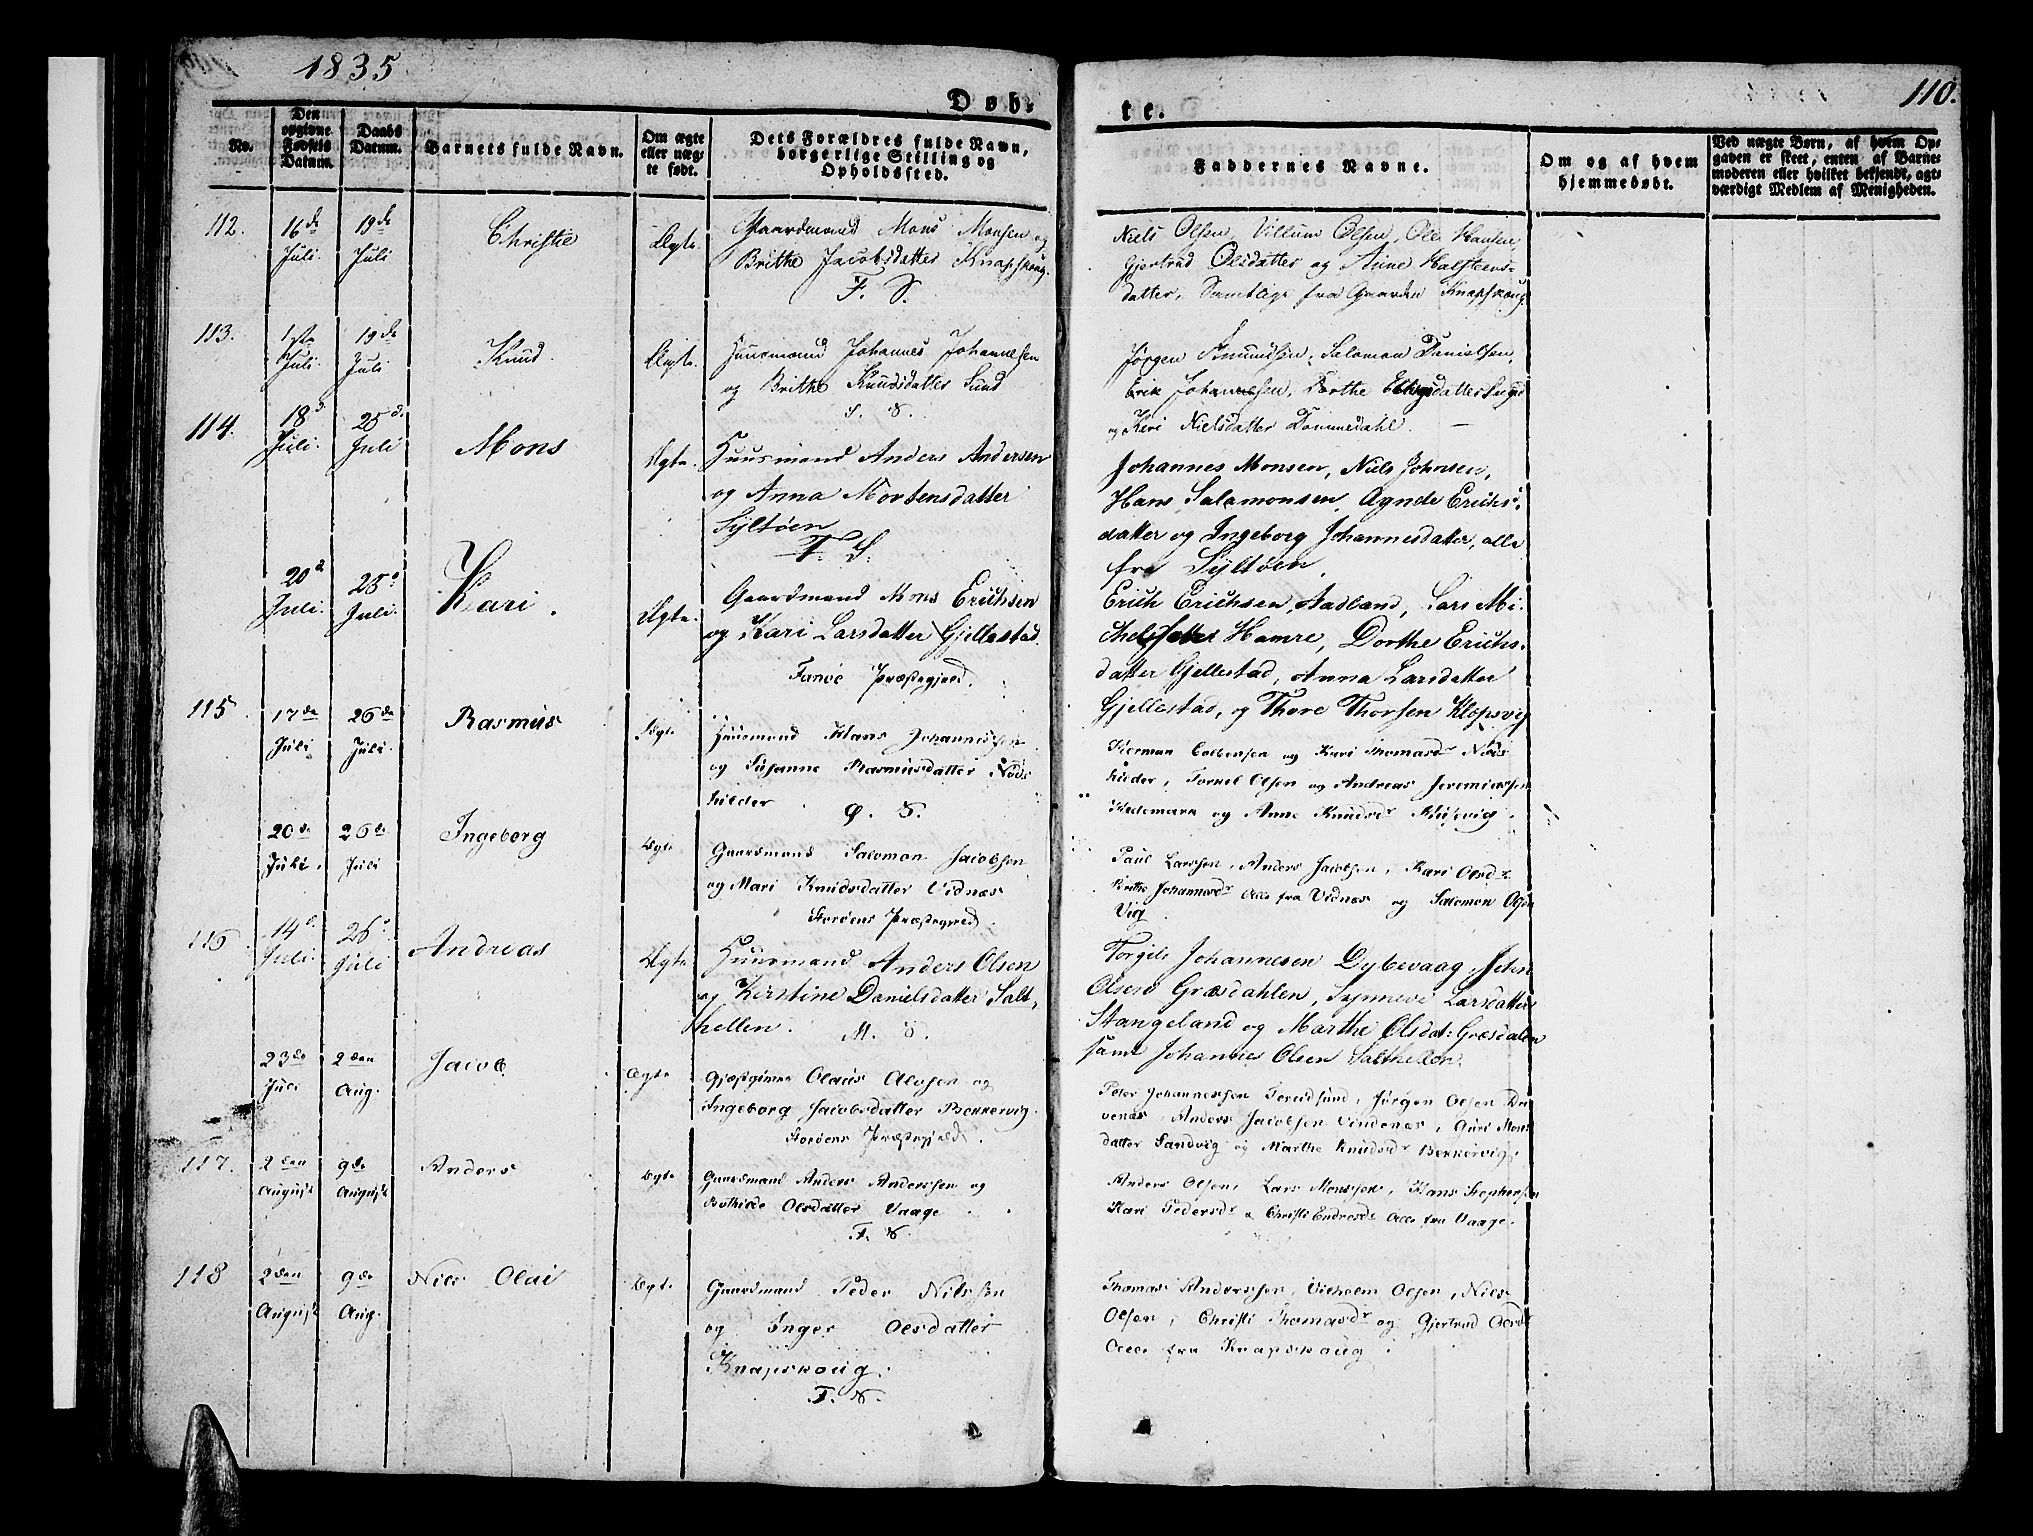 1835
110.
Døb-
te.
No.
Den opgivne Fødsels Datum.
Daabs Datum.
Barnets fulde Navn.
Om ægte eller uægte født.
Dets Forældres fulde Navn, borgerlige Stilling og Opholdssted.
Faddernes Navne.
Om og af hvem hjemmedøbt.
Ved uægte Børn, af hvem Opgaven er skeet, enten af Barnemoderen eller hvilket bekjendt, agtværdigt Medlem af Menigheden.
112. 16de Juli. 19de Juli Christie Ægte
Gaardmand Mons Monsen og
Brithe Jacobsdatter Knapskoug.
F. S.
Niels Olsen, Villum Olsen, Ole Hansen,
Gjertrud Olsdatter og Anne Halsteens-
datter, Samtlige fra Gaarden Knapskoug
113. 1ste Juli. 19de Juli Knud. Ægte.
Huusmand Johannes Johannesen
og Brithe Knudsdatter Sund
F. S.
Jørgen Amundsen, Salomon Danielsen,
Erik Johannesen, Dorthe
og Kari Nielsdatter Dommedahl.
114. 18d Juli. 25d. Juli Mons Ægte.
Huusmand Anders Andersen
og Anna Mortensdatter
Syltøen
F. S.
Johannes Monsen, Niels Johnsen,
Hans Salamonsen, Agnde Erichs-
datter og Ingeborg Johannesdatter, alle
fra Syltøen.
20d Juli. 25d Juli. Kari. Ægte.
Gaardmand Mons Erichsen
og Kari Larsdatter Gjellestad.
Fanøe Præstegjeld.
Erich Erichsen, Aadland, Lars Mi-
Hamre, Dorthe Erichs-
datter Gjellestad, Anna Larsdatter
Gjellestad, og Thore Thorsen Klepsvig
115 17de Juli 26de Juli. Rasmus Ægte
Huusmand Hans Johannessen
og Susanne Rasmusdatter Nøds
kilder. Ø. S.
Herman og Kari Thomasdr Nøds
kilder, Tornel Olsen og Andreas Jeremiassen
Hedemark og Anne Knudsdr
20de Juli. 26de Juli Ingeborg Ægte
Gaardmand Salomon Jacobsen
og Mari Knudsdatter Vidnæs
Storøens Præstegjeld.
Paul Larssen, Anders Jacobsen, Kari Olsdr
Brithe Johannesdr Alle fra Vidnæs og Salomon Olsen
Vig.
116. 14d. Juli. 26d. Juli Andreas Ægte
Huusmand Anders Olsen
og Kirstine Danielsdatter Salt-
hellen. M. S.
Torgils Johannesen Dybevaag,
Olsen Græsdahlen, Synneve Larsdatter
Stangeland og Marthe Olsdat: Græsdalen
samt Johannes Olsen Salthellen.
23de Juli 2den Aug. Jacob Ægte
Gjæstgiver Olaus Alvsen og
Ingeborg Jacobsdatter Bekkervig.
Storøens Præstegjeld.
Peder Johannessen Jørgen Olsen Dri
venæs, Anders Jacobsen Vindenæs, Guri Mons
datter Sandvig og Marthe Knudsdr Bekkervig.
117. 2den August 9de August Anders Ægte
Gaardmand Anders Anderssen og
Bothilde Olsdatter Vaage
F. S.
Anders Olsen, Lars Monssen, Hans
Kari Pedersdr & Christi Endresdr Alle fra Vaage.
118 2den August 9de Aug. Nils Olai Ægte
Gaardmand Peder Nilssen
og Inger Olsdatter
Knapskoug.
F. S.
Thomas Anderssen, Vilhelm Olsen, Nils
Olsen, Christi Thomasdr og Gjertrud Olsdr
Alle fra Knapskoug.